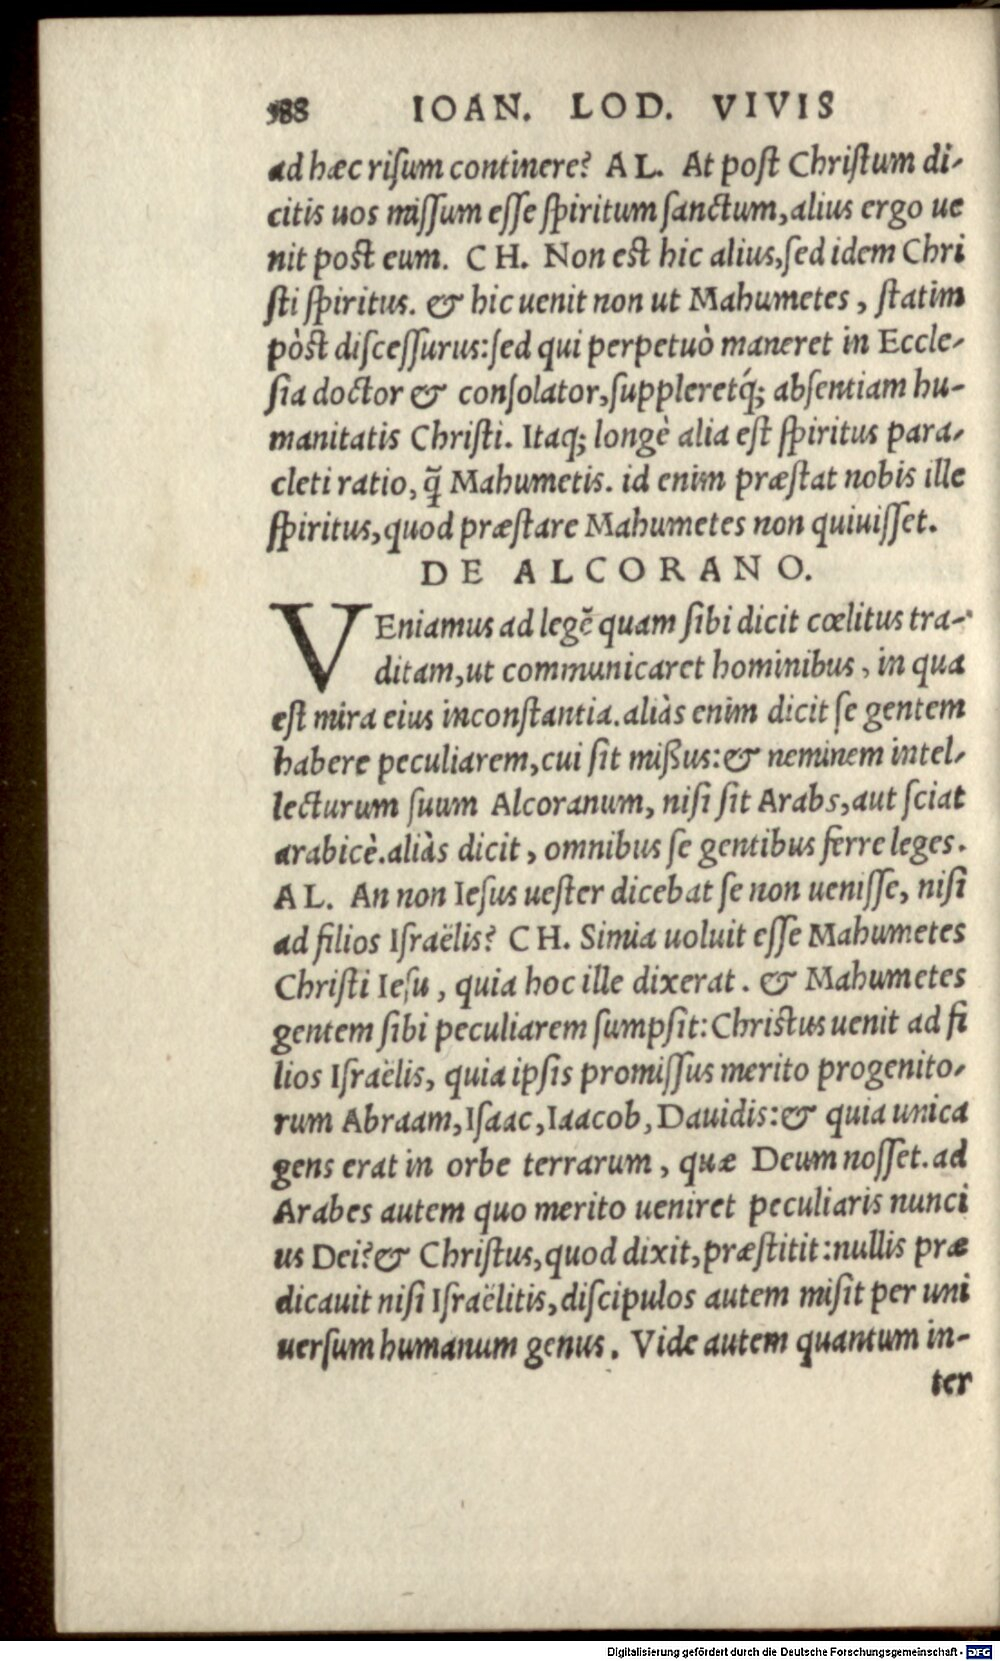 388 IOAN. LOD. VIVIS
ad hæc riſum continere? AL. At poſt Chriſtum di-
citis uos miſſum eſſe ſpiritum ſanctum, alius ergo ue
nit poſt eum. CH. Non eſt hic alius, ſed idem Chri
ſti ſpiritus. & hic uenit non ut Mahumetes, ſtatim
pòſt diſceſſurus: ſed qui perpetuò maneret in Eccle-
ſia doctor & conſolator, ſuppleretq́; abſentiam hu-
manitatis Chriſti. Itaq; longè alia eſt ſpiritus para-
cleti ratio, q̃ Mahumetis. id enim præſtat nobis ille
ſpiritus, quod præſtare Mahumetes non quiuiſſet.
DE ALCORANO.
VEniamus ad legẽ quam ſibi dicit cœlitus tra-
ditam, ut communicaret hominibus, in qua
eſt mira eius inconſtantia. aliàs enim dicit ſe gentem
habere peculiarem, cui ſit mißus: & neminem intel-
lecturum ſuum Alcoranum, niſi ſit Arabs, aut ſciat
arabicè. aliàs dicit, omnibus ſe gentibus ferre leges.
AL. An non Ieſus ueſter dicebat ſe non ueniſſe, niſi
ad filios Iſraëlis? CH. Simia uoluit eſſe Mahumetes
Chriſti Ieſu, quia hoc ille dixerat. & Mahumetes
gentem ſibi peculiarem ſumpſit: Chriſtus uenit ad fi
lios Iſraëlis, quia ipſis promiſſus merito progenito-
rum Abraam, Iſaac, Iaacob, Dauidis: & quia unica
gens erat in orbe terrarum, quæ Deum noſſet. ad
Arabes autem quo merito ueniret peculiaris nunci
us Dei? & Chriſtus, quod dixit, præſtitit: nullis præ
dicauit niſi Iſraëlitis, diſcipulos autem miſit per uni
uerſum humanum genus. Vide autem quantum in-
ter
Digitalisierung gefördert durch die Deutsche Forschungsgemeinschaft - DFG